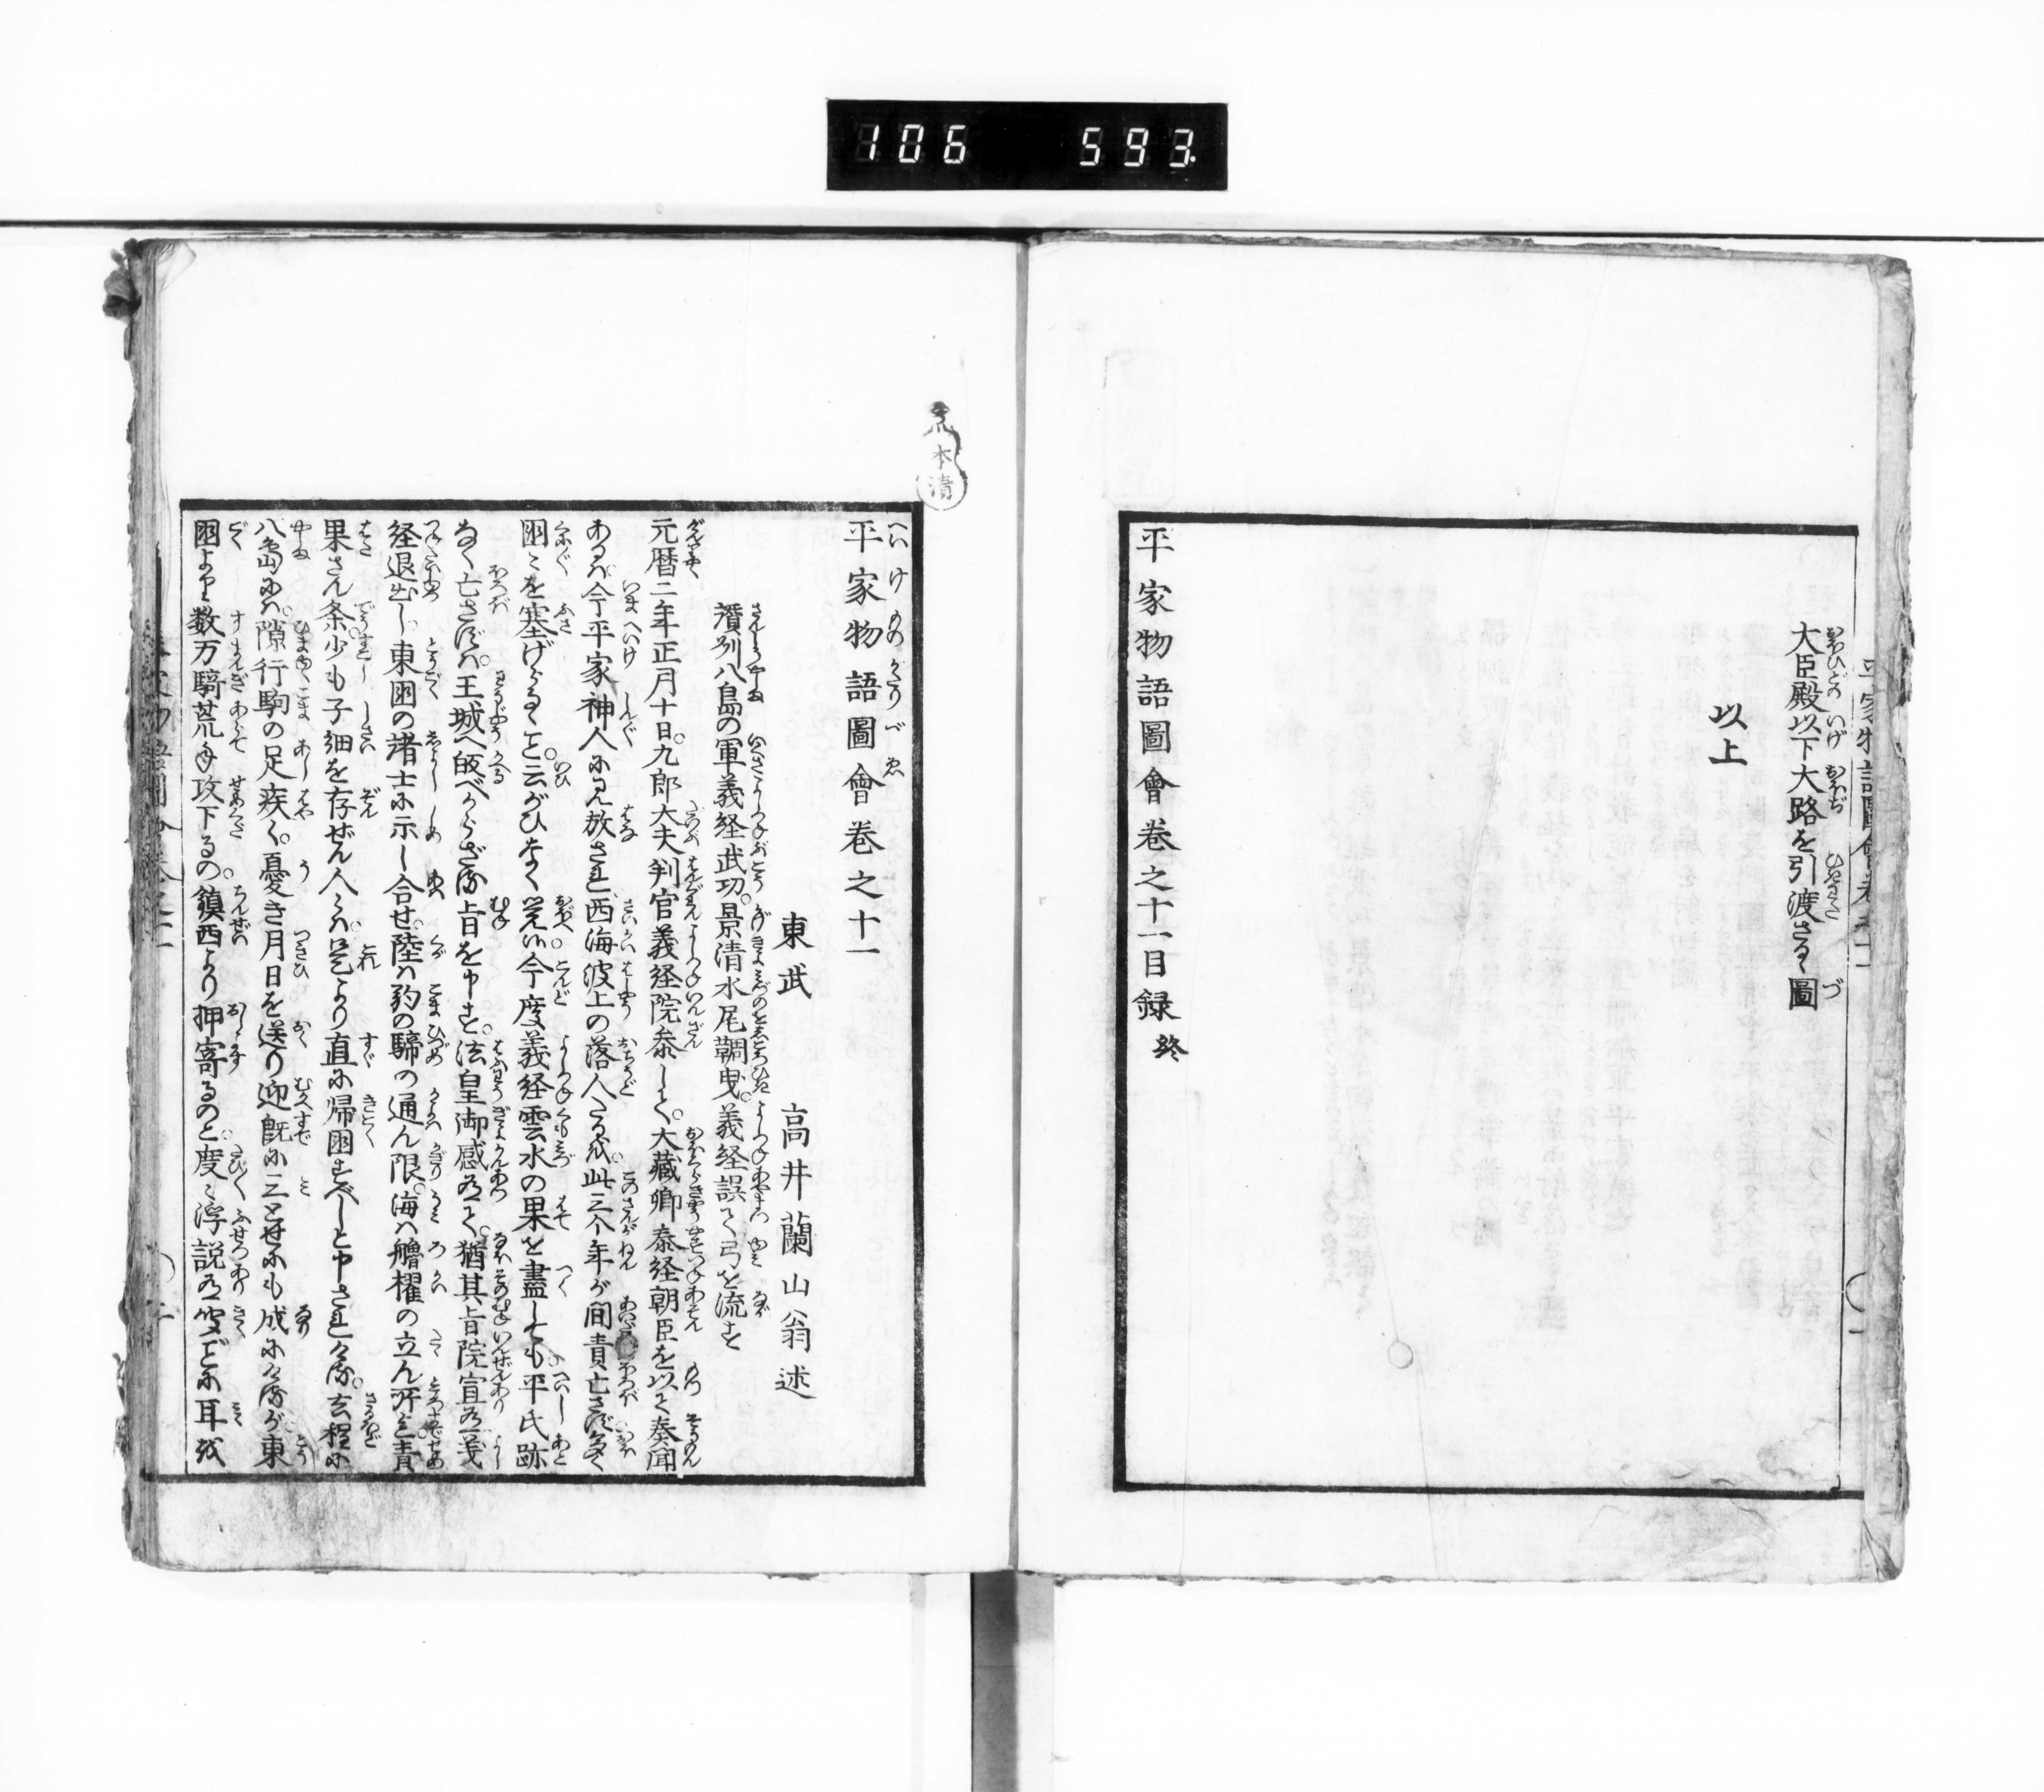 106 593
大臣殿以下大路を引渡さるゝ圖
以上
平家物語圖會卷之十一目録終
平家物語圖會卷之十一
東武 高井蘭山翁述
讃州八島の軍義経武功。景清水尾鞠曳。義経誤て弓を流す
元暦二年正月十日。九郎大夫判官義経院参して。大蔵卿泰経朝臣を以て奏聞
あるは。今平家神人に見放され西海波上の落人たるを。此三个年が間責亡さず多く
国ゝを塞げらるゝこと。云がひなく覚い今度義経雲水の果を盡しても。平氏跡
なく亡さずは。王城へ皈べからざる旨を申す。法皇御感有て。猶其旨院宣有義
経退出し。東国の諸士に示し合せ。陸は豹の蹄の通ん限。海は艪櫂の立ん所まで。責
果さん条。少も子細を存ぜん人々は是より直に帰国すべしと申されける。去程に
八島には。隙行駒の足疾く。憂き月日を送り迎既に三とせにも成にけるが。東
国より数万騎荒手攻下るの。鎮西より押寄るのと。度ゝ浮説有毎に耳を
本清